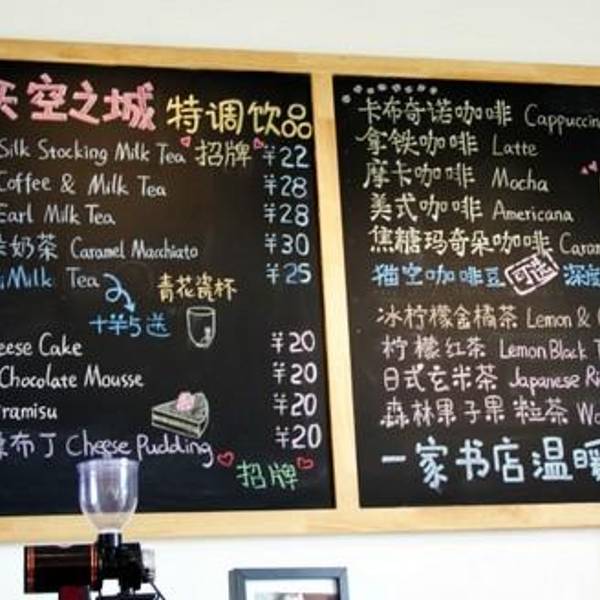 天空之城 特调饮品
Silk Stocking Milk Tea 招牌 ¥22
Coffee & Milk Tea ¥28
Earl Milk Tea ¥28
奶茶 Caramel Macchiato ¥30
Milk Tea ¥25
青花瓷杯
+¥5送
Cake ¥20
Chocolate Mousse ¥20
ramisu ¥20
布丁 Cheese Pudding ¥20
招牌
卡布奇诺咖啡 Cappuccin
拿铁咖啡 Latte
摩卡咖啡 Mocha
美式咖啡 Americana
焦糖玛奇朵咖啡 Caram
猫空咖啡豆 可选 深度
冰柠檬金橘茶 Lemon &
柠檬红茶 Lemon Black T
日式玄米茶 Japanese Ri
森林果子果粒茶 Wo
一家书店温暖